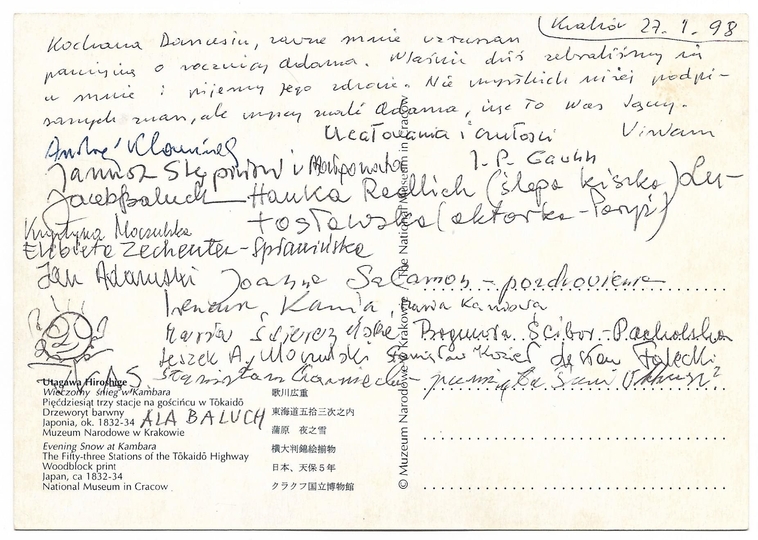 Kraków 27.1.98
Kochana Danusiu, zawsze mnie wzruszasz
pamięcią o rocznicy Adama. Właśnie dziś zebraliśmy się
u mnie i pijemy Jego zdrowie. Nie wszystkich niżej podpi-
sanych znasz, ale wszyscy znali Adama, więc to Was łączy.
Ucałowania i czułości
Andrzej
Janusz i Małgorzata
Jacek Baluch Hanka Redlich (ślepa kiszka) Lu-
tosławska (aktorka - Paryż)
Krystyna Moczulska
Elżbieta Zechenter-Spławińska
Jan Adamski Joanna Salamon - pozdrowienia
Ireneusz Kania, Maria Kaniowa
Maria Bogumiła Ścibor-Pacholska
Leszek A. Moczulski Stanisław
Stanisław
ALA BALUCH
Utagawa Hiroshige
Wieczorny śnieg w Kambara
Pięćdziesiąt trzy stacje na gościńcu w Tōkaidō
Drzeworyt barwny
Japonia, ok. 1832-34
Muzeum Narodowe w Krakowie
Evening Snow at Kambara
The Fifty-three Stations of the Tōkaidō Highway
Woodblock print
Japan, ca 1832-34
National Museum in Cracow
歌川広重
東海道五拾三次之内
蒲原 夜之雪
横大判錦絵揃物
日本、天保5年
クラクフ国立博物館
© Muzeum Narodowe w Krakowie The National Museum in Cracow